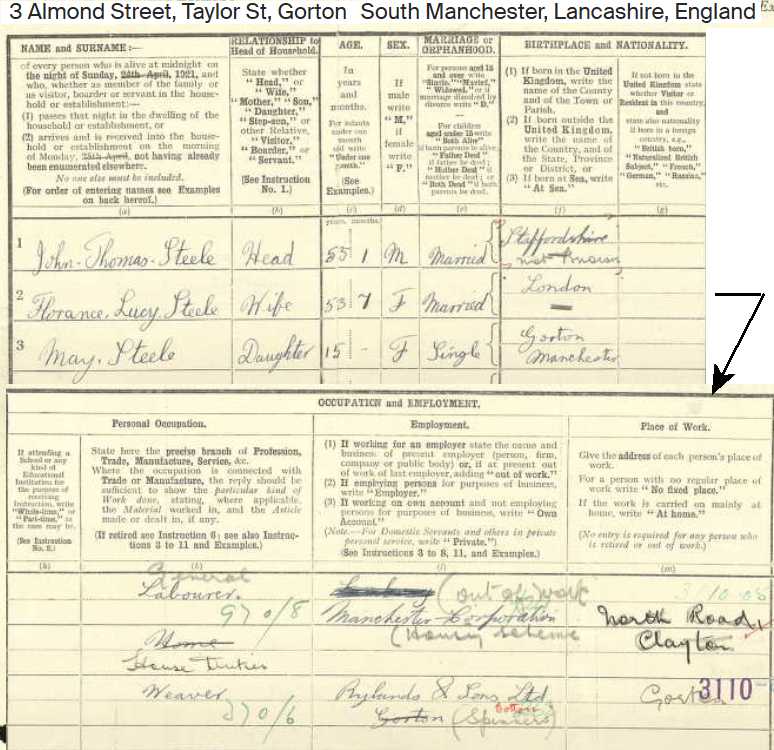 3 Almond Street, Taylor St, Gorton South Manchester, Lancashire, England
NAME and SURNAME:—
of every person who is alive at midnight on
the night of Sunday, 24th April, 1921, and
who, whether as member of the family or
as visitor, boarder or servant in the house-
hold or establishment:—
(1) passes that night in the dwelling of the
household or establishment, or
(2) arrives and is received into the house-
hold or establishment on the morning
of Monday, 25th April, not having already
been enumerated elsewhere.
No one else must be included.
(For order of entering names see Examples
on back hereof.)
(a)
RELATIONSHIP to
Head of Household.
State whether
"Head," or
"Wife,"
"Mother," "Son,"
"Daughter,"
"Step-son," or
other Relative,
"Visitor,"
"Boarder," or
"Servant."
(See Instruction
No. 1.)
(b)
AGE.
In
years
and
months.
For infants
under one
month
old write
"Under one
month."
(See
Examples.)
(c)
SEX.
If
male
write
"M,"
if
female
write
"F."
(d)
MARRIAGE or
ORPHANHOOD.
For persons aged 15
and over write
"Single," "Married,"
"Widowed," or if
marriage dissolved by
divorce write "D."
For children
aged under 15 write
"Both Alive"
if both parents be alive;
"Father Dead"
if father be dead;
"Mother Dead" if
mother be dead; or
"Both Dead" if both
parents be dead.
(e)
BIRTHPLACE and NATIONALITY.
(1) If born in the United
Kingdom, write the
name of the County
and of the Town or
Parish.
(2) If born outside the
United Kingdom,
write the name of
the Country, and of
the State, Province
or District, or
(3) If born at Sea, write
"At Sea."
(f)
If not born in the
United Kingdom state
whether Visitor or
Resident in this country,
and
state also nationality
if born in a foreign
country, e.g.,
"British born,"
"Naturalised British
Subject," "French,"
"German," "Russian,"
etc.
(g)
years. months.
1 John Thomas Steele Head 55 1 M Married Staffordshire
not known
2 Florance Lucy Steele Wife 53 7 F Married London
3 May Steele Daughter 15 - F Single Gorton
Manchester
OCCUPATION and EMPLOYMENT.
Personal Occupation.
If attending a
School or any
kind of
Educational
Institution for
the purpose of
receiving
instruction, write
"Whole-time," or
"Part-time," as
the case may be.
(See Instruction
No. 2.)
(h)
State here the precise branch of Profession,
Trade, Manufacture, Service, &c.
Where the occupation is connected with
Trade or Manufacture, the reply should be
sufficient to show the particular kind of
Work done, stating, where applicable,
the Material worked in, and the Article
made or dealt in, if any.
(If retired see Instruction 6; see also Instruc-
tions 3 to 11 and Examples.)
(k)
Employment.
(1) If working for an employer state the name and
business of present employer (person, firm,
company or public body) or, if at present out
of work of last employer, adding "out of work."
(2) If employing persons for purposes of business,
write "Employer."
(3) If working on own account and not employing
persons for purposes of business, write "Own
Account."
(Note.—For Domestic Servants and others in private
personal service, write "Private.")
(See Instructions 3 to 8, 11, and Examples.)
(l)
Place of Work.
Give the address of each person's place of
work.
For a person with no regular place of
work write "No fixed place."
If the work is carried on mainly at
home, write "At home."
(No entry is required for any person who
is retired or out of work.)
(m)
General
Labourer.
970/8
(out of work
Manchester Corporation
(Housing Scheme
3/10.08
North Road,
Clayton
Home
House Duties
Weaver
270/6
Rylands & Sons Ltd
Gorton (Cotton Spinners)
Gorton
3110-